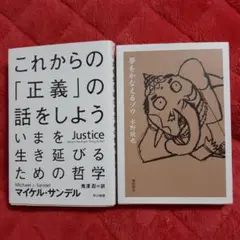 これからの
「正義」の
話をしよう
いまを
Justice
生き延びる
ための哲学
Michael J. Sandel
鬼澤 忍=訳
マイケル・サンデル
早川書房
夢をかなえるゾウ
水野敬也
飛鳥新社